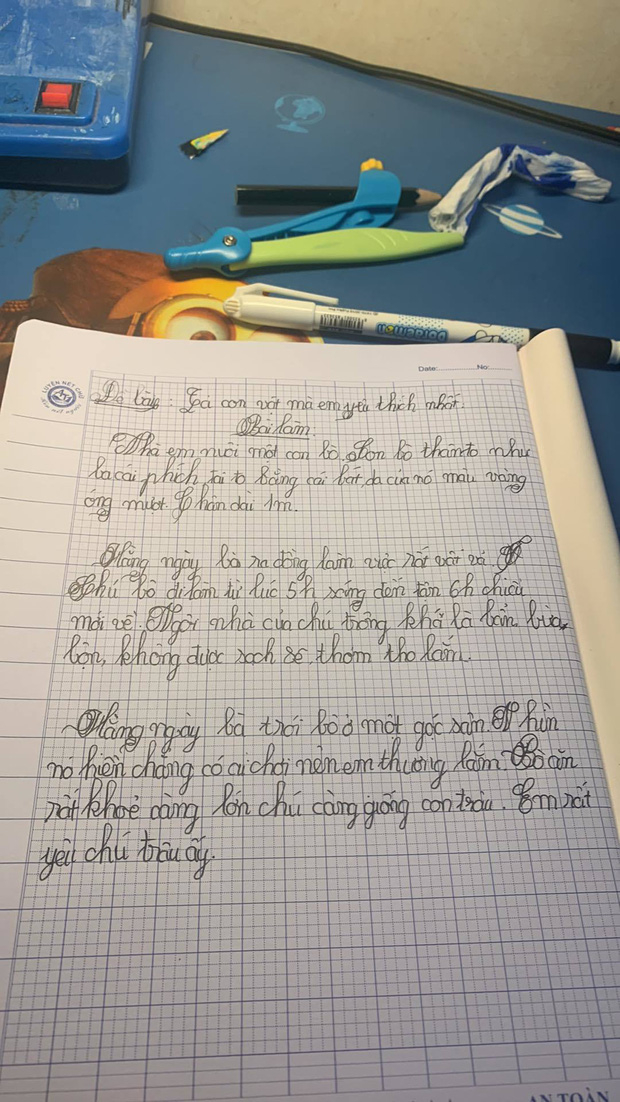 Date: No:
LUYỆN NÉT CHỮ
Đề bài: Tả con vật mà em yêu thích nhất.
Bài làm.
Nhà em nuôi một con bò. Con bò thân to như
là cái phích, tai to bằng cái bát, da của nó màu vàng
óng mượt. Chân dài 1m.
Hằng ngày bà ra đồng làm việc rất vất vả.
Chú bò đi làm từ lúc 5h sáng đến tận 6h chiều
mới về. Ngôi nhà của chú trông khá là bẩn, bừa,
lộn, không được sạch sẽ, thơm tho lắm.
Hằng ngày bà trói bò ở một góc sân. Nhìn
nó hiền chẳng có ai chơi nên em thương lắm. Bò ăn
rất khoẻ càng lớn chú càng giống con trâu. Em rất
yêu chú trâu ấy.
AN TOÀN